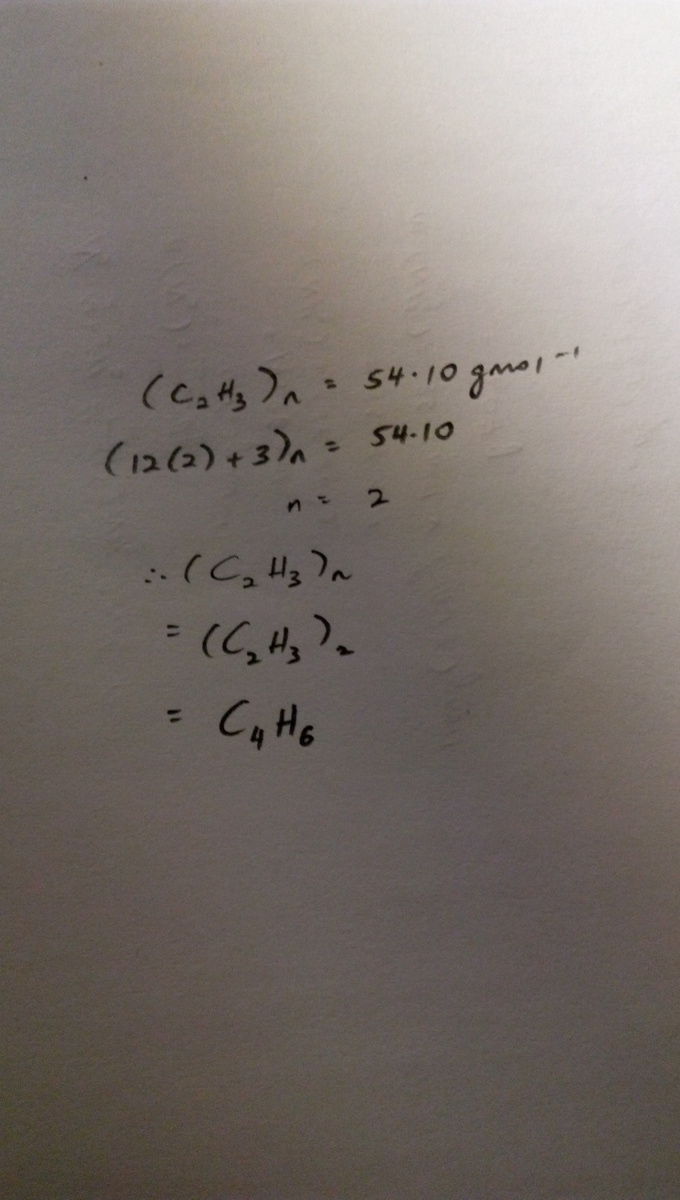 (C₂H₃)ₙ = 54·10 gmol⁻¹
(12(2) + 3)ₙ = 54·10
n = 2
∴ (C₂H₃)ₙ
= (C₂H₃)₂
= C₄H₆